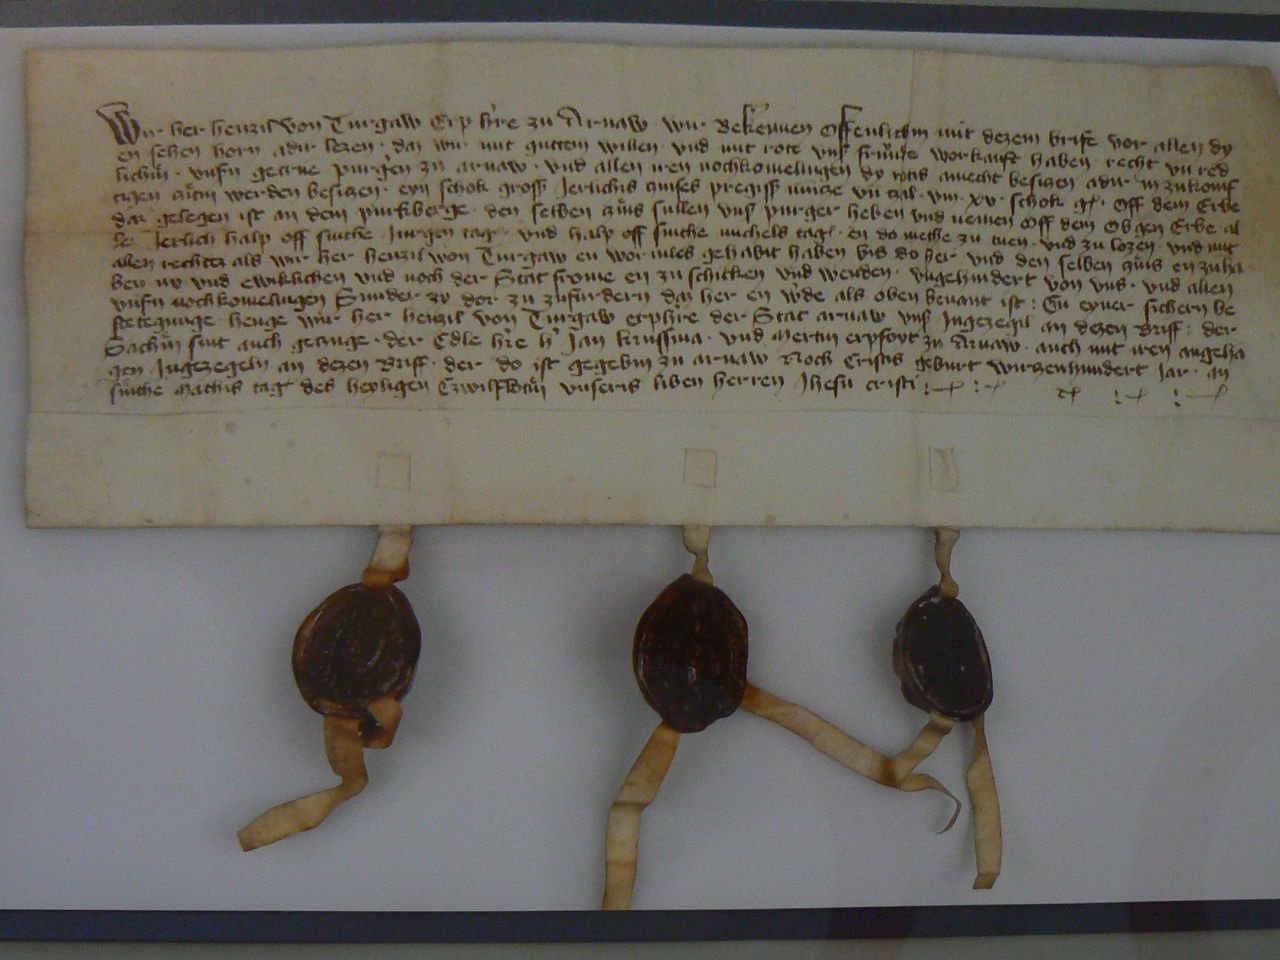 Wir her henzil von Turgaw Erp h're zu Arnaw wir Bekennen Offenlichin mit dezem brife vor allen dy
en sehen horn adir lezen · daz wir mit guttem willen · vnd mit rote vnsir frunde vorkauft haben · recht vn red
lichin · vnsirn getrue purgern zu arnaw · vnd allen iren nochkomelingen dy rotis amecht besitzen adir in zukonf
tigen zitin werden besitzen · eyn schok gross Jerlichis zinses pregiss muncze vn czal · vm · xv · schok gr · Off dem Erbe
daz gelegen ist an dem purkberge · den selben zins sullen vnsir purger heben vnd nemen Off dem Obgen Erbe al
le Jerlich halp off sinthe Jurgen tag · vnd halp off sinthe michels tag · en do methe zu tuen · vnd zu lozen · vnd mit
allen rechtez als wir her henzil von Turgaw en vormoles gehabit haben bis do her vnd den selben zins en zuha
ben nv vnd ewiklichen vnd noch der Stat frome en zu schicken vnd wenden · vngehindert von vns · vnd allen
vnsirn nochkomelingen Sunder zu dor zu zufurdern daz her en w'de als oben benant ist : Cu eyner sichern be
stetegunge · henge wir her henzil von Turgaw erph're der Stat arnaw vnsir Jngezegil an dezen Briff : der
Sachin sint auch getzuge · der Edle h're h' Jan krussina · vnd Mertin erpfoyt zu Arnaw · auch mit iren angeha
gen Jngezegeln an dezen Briff · der do ist gegebin zu arnaw Noch Cristis geburt virzenhundert Jar · an
sinthe Mathis tag des heyligen Czwilfbotin vnseris liben herren Jhesu cristi